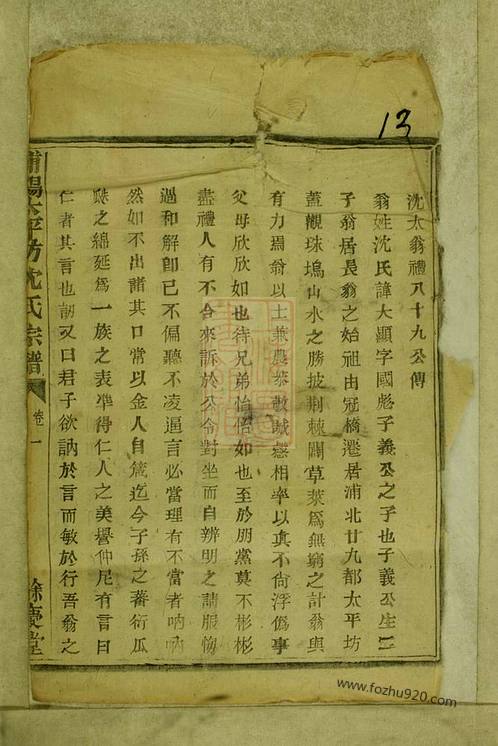 13
沈太翁禮八十九公傳
翁姓沈氏諱大顯字國彪子義公之子也子義公生二
子翁居長翁之始祖由冠橋遷居浦北廿九都太平坊
蓋觀珠塢山水之勝披荆棘闢草萊爲無窮之計翁與
有力焉翁以士兼農恭敬誠慤相率以真不尙浮僞事
父母欣欣如也待兄弟怡怡如也至於朋黨莫不彬彬
盡禮人有不合來訴於公令對坐而自辨明之請服悔
過和解卽已不偏聽不凌逼言必當理有不當者吶吶
然如不出諸其口常以金人自箴迄今子孫之蕃衍瓜
瓞之綿延爲一族之表準得仁人之美譽仲尼有言曰
仁者其言也訒又曰君子欲訥於言而敏於行吾翁之
浦陽太平坊沈氏宗譜
卷一
餘慶堂
www.fozhu920.com